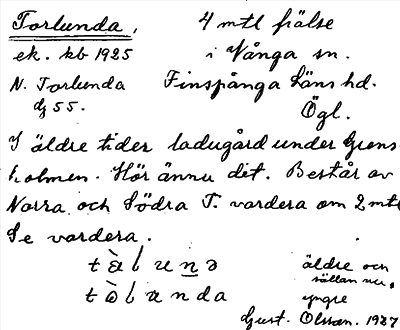 Torlunda, 4 mtl frälse
ek. kb 1925 i Vånga sn.
N. Torlunda Finspånga Läns hd.
dj 55. Ögl.
I äldre tider ladugård under Grens-
holmen. Hör ännu dit. Består av
Norra och Södra T. vardera om 2 mtl
Se vardera.
äldre och
sällan nu,
yngre
Gust. Olsson. 1927